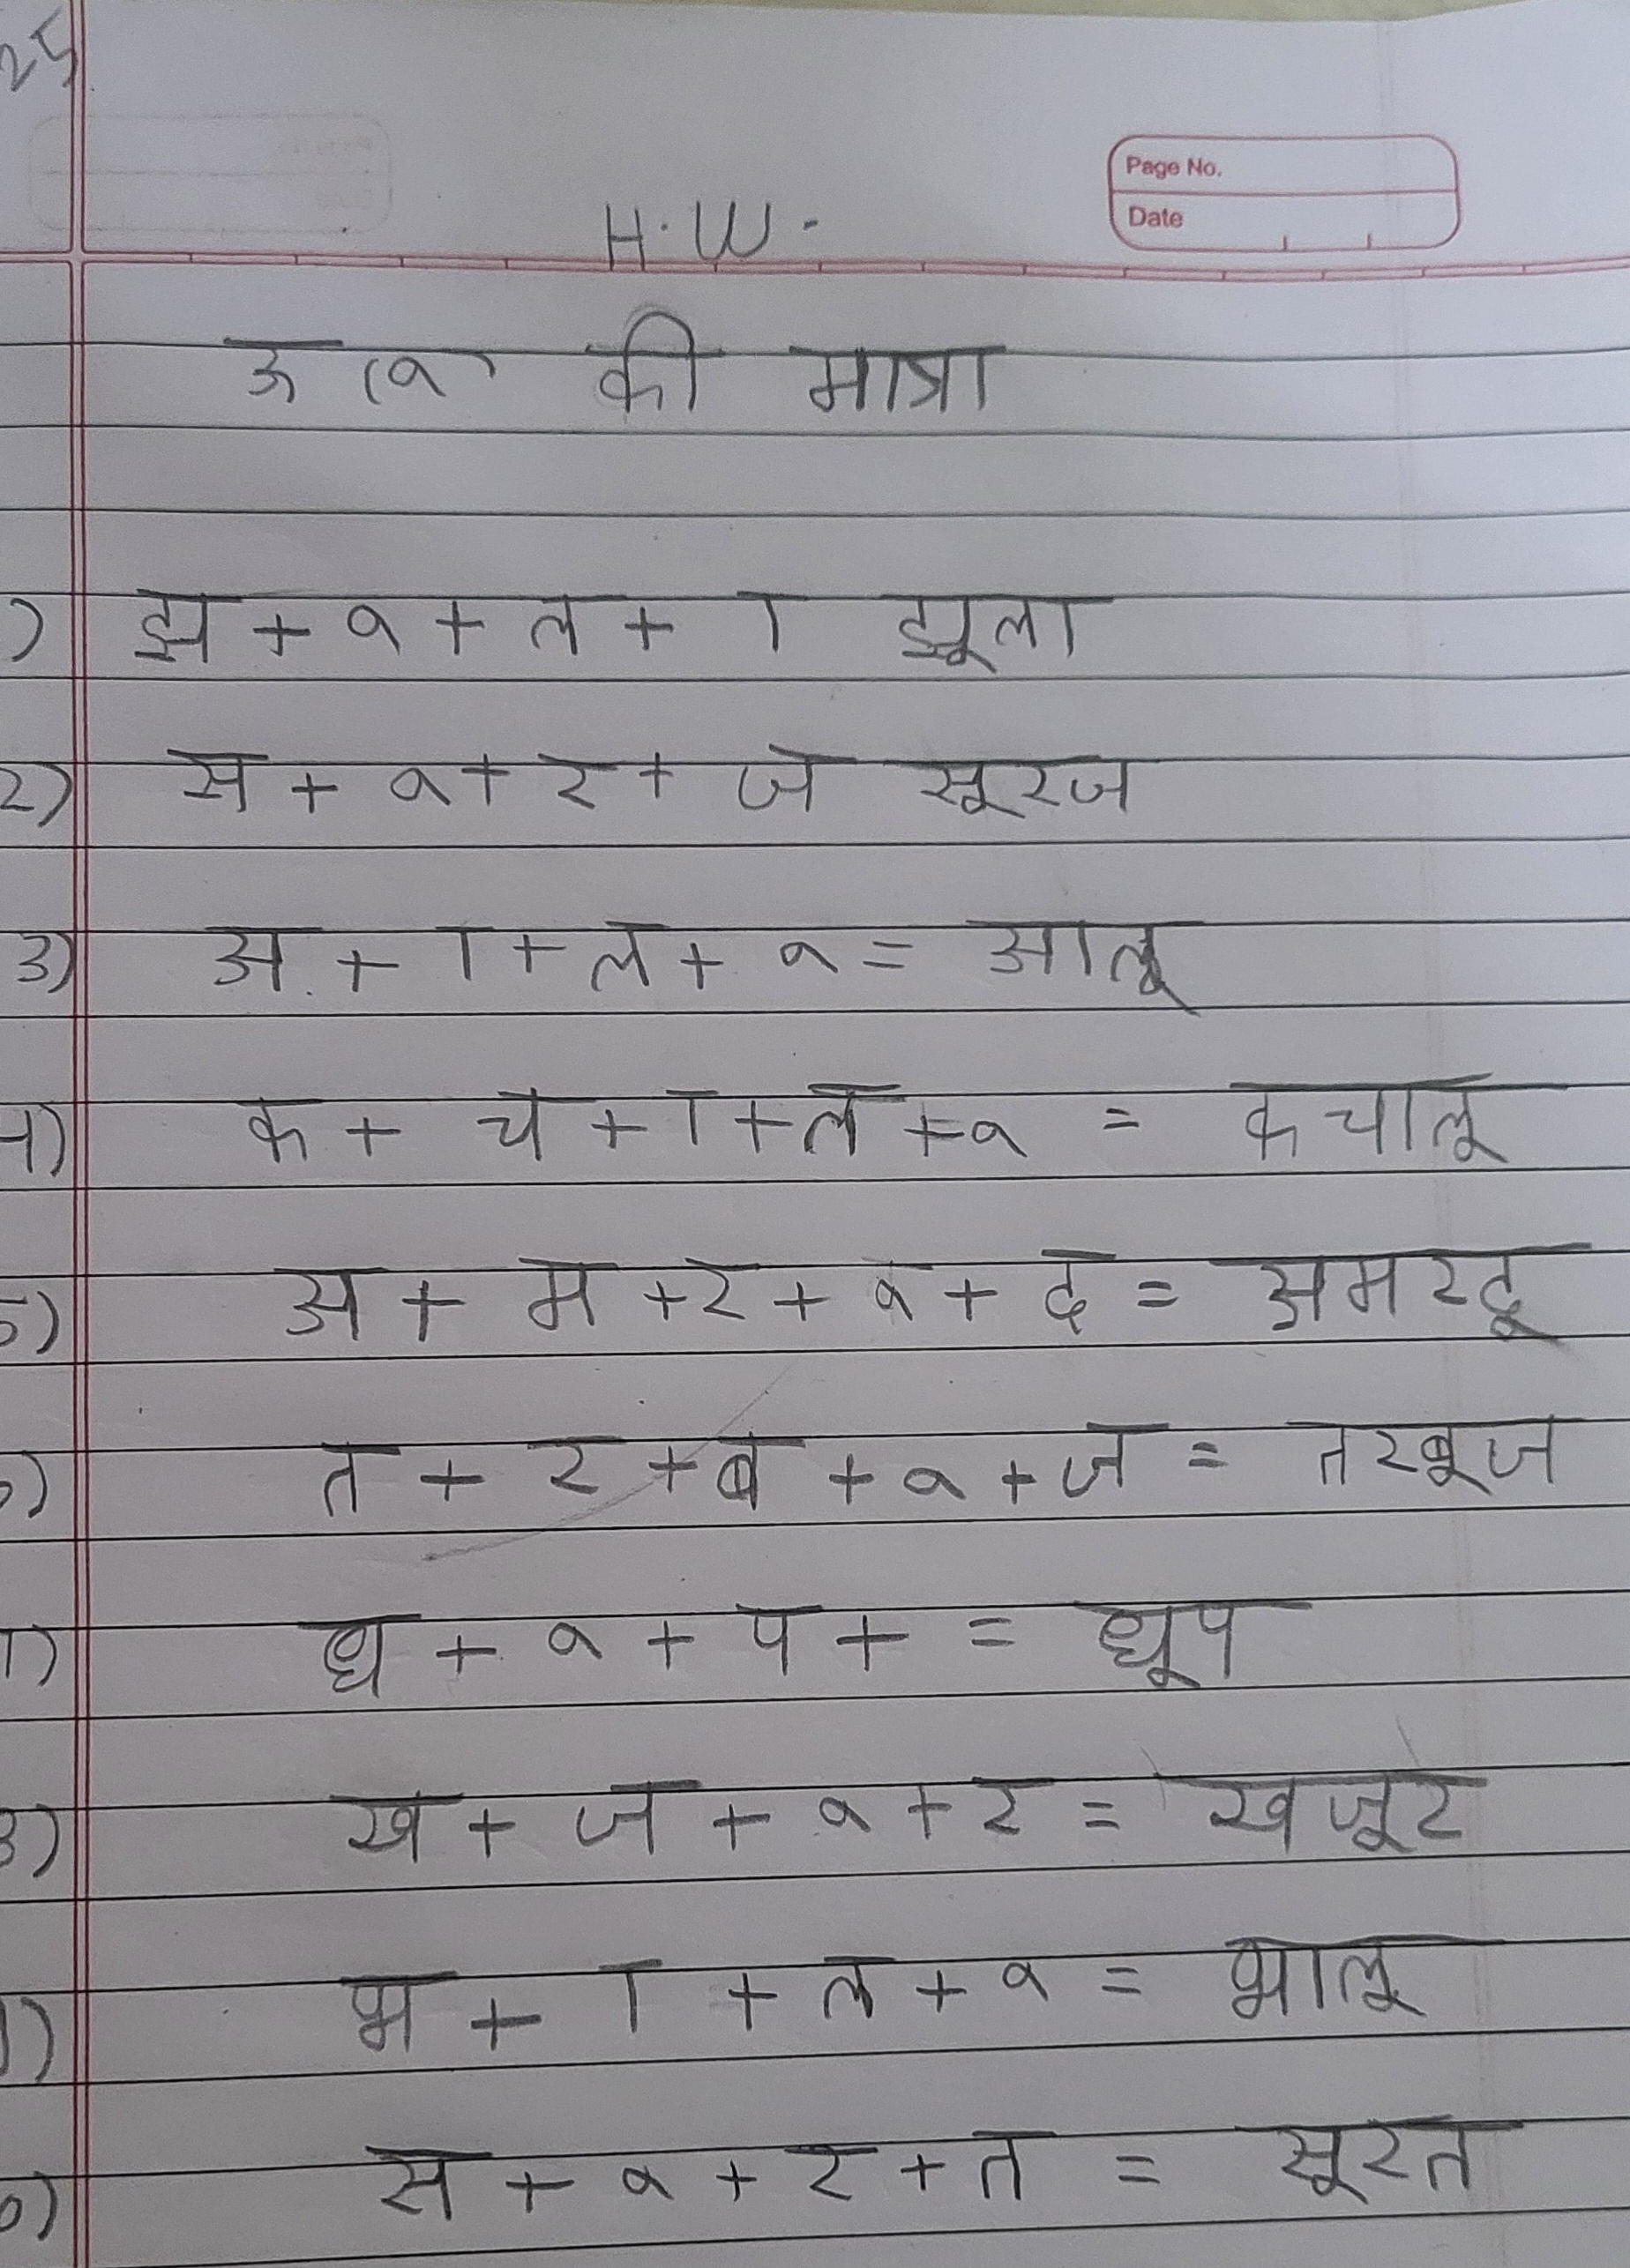 25
Page No.
Date
H.W.
ऊ (ू) की मात्रा
) झ + ू + ल + ा झूला
2) स + ू + र + ज सूरज
3) अ + ा + ल + ू = आलू
4) क + च + ा + ल + ू = कचालू
5) अ + म + र + ू + द = अमरदू
6) त + र + ब + ू + ज = तरबूज
7) ध + ू + प + = धूप
8) ख + ज + ू + र = खजूर
9) भ + ा + ल + ू = भालू
0) स + ू + र + त = सूरत